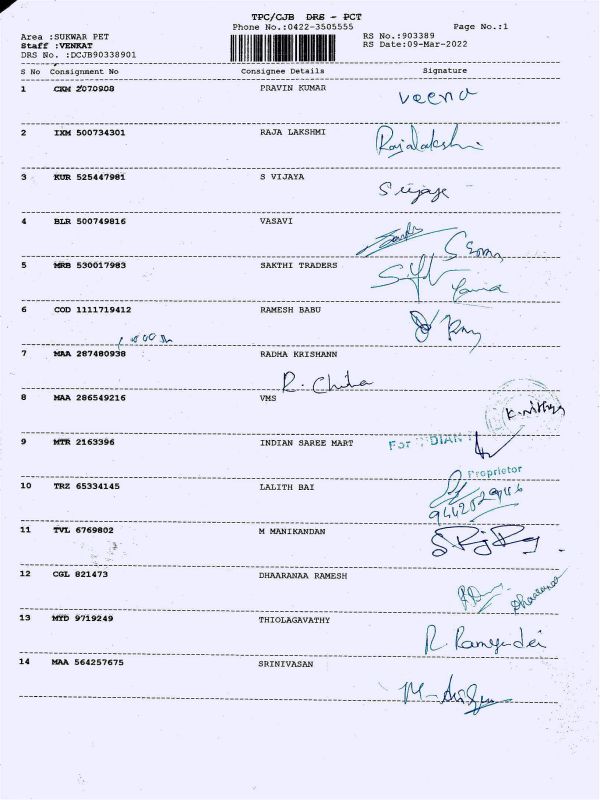 TPC/CJB DRS - PCT
Phone No.:0422-3505555 Page No.:1
Area :SUKWAR PET RS No.:903389
Staff :VENKAT RS Date:09-Mar-2022
DRS No. :DCJB90338901
S No Consignment No Consignee Details Signature
1 CKM 2070908 PRAVIN KUMAR
veena
2 IXM 500734301 RAJA LAKSHMI
Rajalakshmi
3 KUR 525447981 S VIJAYA
S Vijaya
4 BLR 500749816 VASAVI
5 MRB 530017983 SAKTHI TRADERS
6 COD 1111719412 RAMESH BABU
7 MAA 287480938 RADHA KRISHANN
R. Chitra
8 MAA 286549216 VMS
K. Nithya
9 MTR 2163396 INDIAN SAREE MART
For DIAN
Proprietor
10 TRZ 65334145 LALITH BAI
11 TVL 6769802 M MANIKANDAN
12 CGL 821473 DHAARANAA RAMESH
Dhaaranaa
13 MTD 9719249 THIOLAGAVATHY
R. Ramya devi
14 MAA 564257675 SRINIVASAN